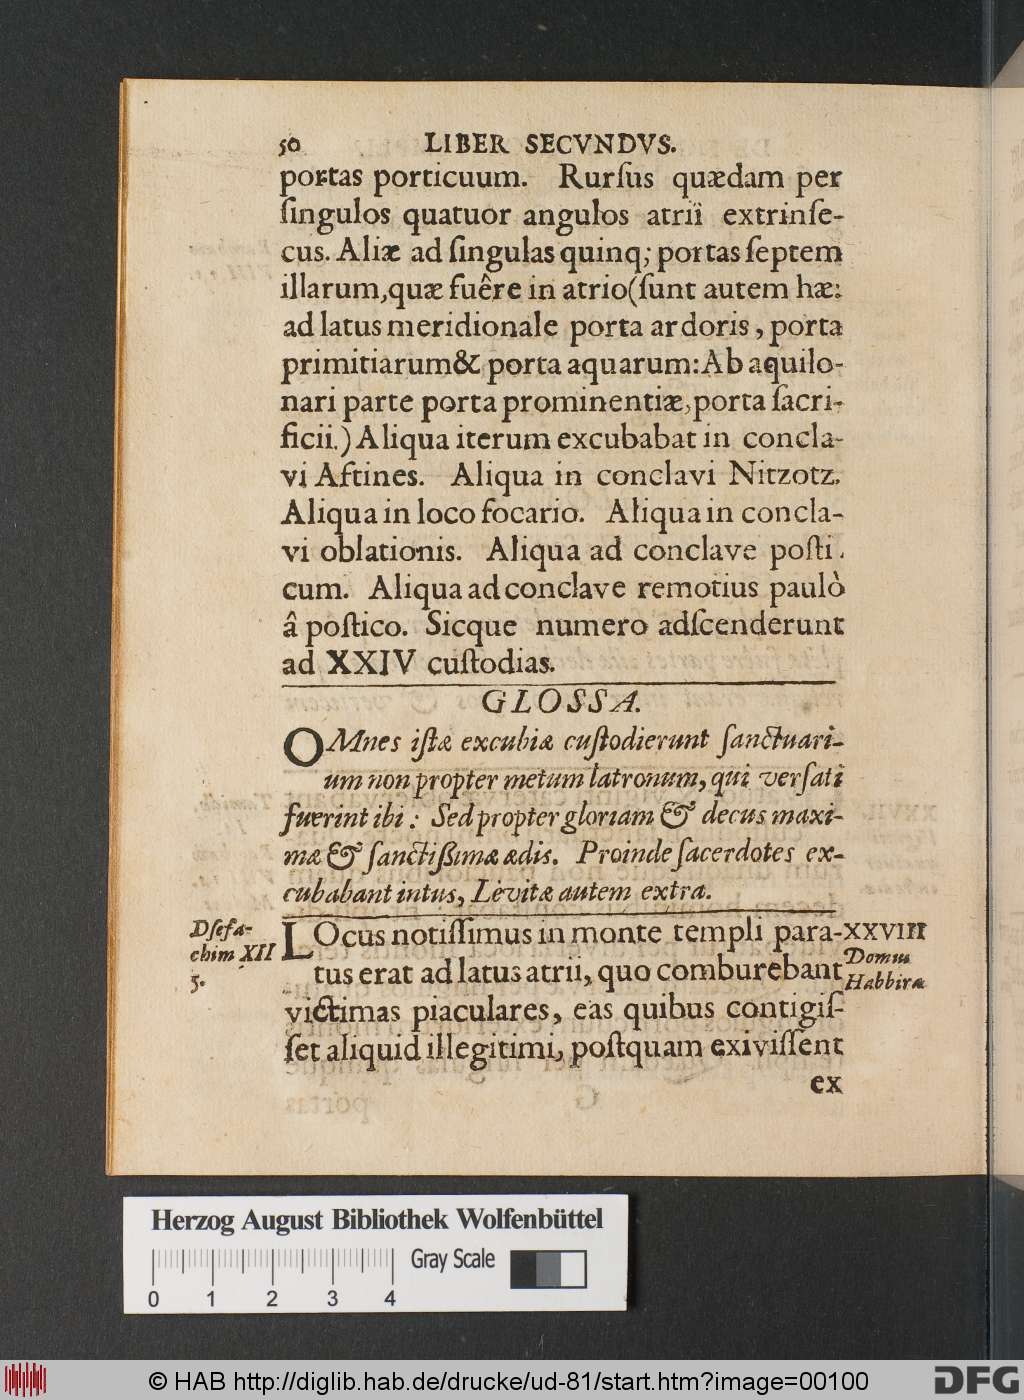 50 LIBER SECVNDVS.
portas porticuum. Rurſus quædam per
ſingulos quatuor angulos atrii extrinſe-
cus. Aliæ ad ſingulas quinq; portas ſeptem
illarum, quæ fuêre in atrio (ſunt autem hæ:
ad latus meridionale porta ardoris, porta
primitiarum & porta aquarum: Ab aquilo-
nari parte porta prominentiæ, porta ſacri-
ficii.) Aliqua iterum excubabat in concla-
vi Aftines. Aliqua in conclavi Nitzotz.
Aliqua in loco focario. Aliqua in concla-
vi oblationis. Aliqua ad conclave poſti.
cum. Aliqua ad conclave remotius paulò
â poſtico. Sicque numero adſcenderunt
ad XXIV cuſtodias.
GLOSSA.
OMnes iſtæ excubiæ cuſtodierunt ſanctuari-
um non propter metum latronum, qui verſati
fuerint ibi: Sed propter gloriam & decus maxi-
mæ & ſanctiſſimæ ædis. Proinde ſacerdotes ex-
cubabant intus, Levitæ autem extra.
Dſefa-
chim XII
5.
LOcus notiſſimus in monte templi para-
tus erat ad latus atrii, quo comburebant
victimas piaculares, eas quibus contigiſ-
ſet aliquid illegitimi, poſtquam exiviſſent
XXVIII
Domus
Habbiræ
ex
Herzog August Bibliothek Wolfenbüttel
Gray Scale
0 1 2 3 4
© HAB http://diglib.hab.de/drucke/ud-81/start.htm?image=00100
DFG